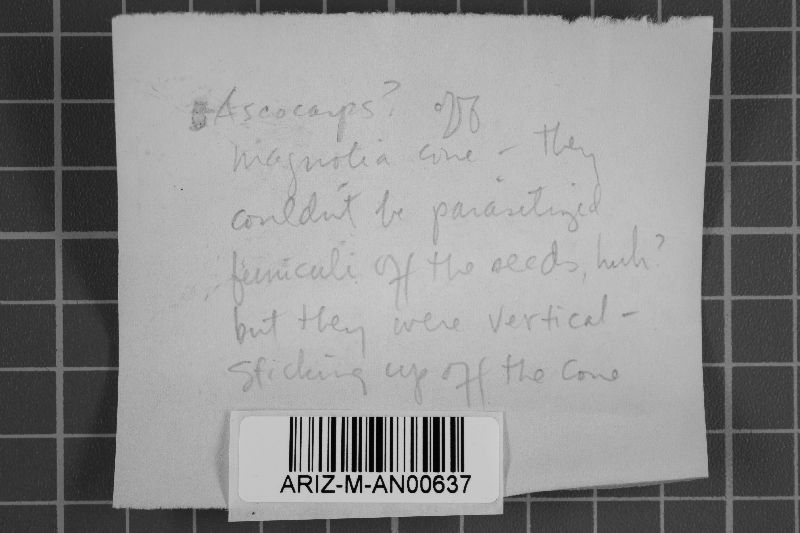 Ascocarps? off
magnolia cone - they
couldn't be parasitized
funiculi off the seeds, huh?
but they were vertical -
sticking up off the cone
ARIZ-M-AN00637